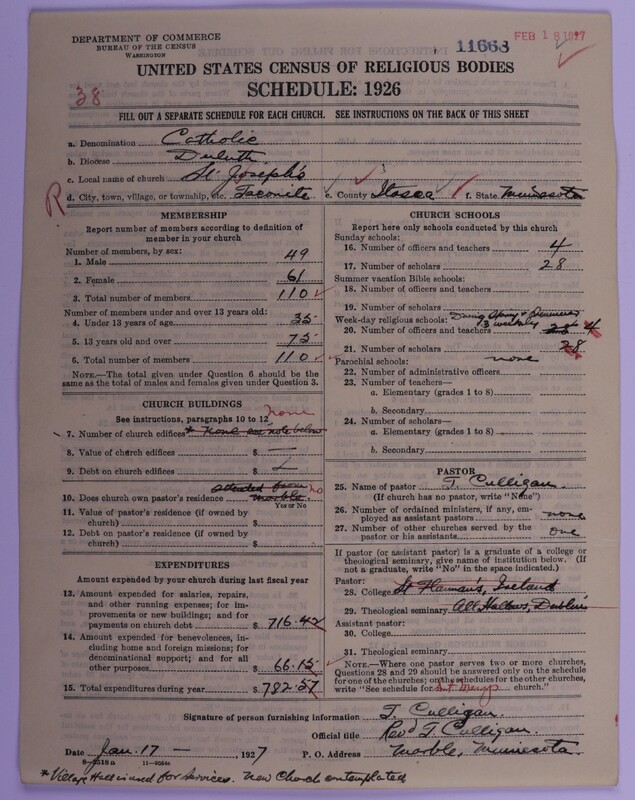 DEPARTMENT OF COMMERCE
BUREAU OF THE CENSUS
WASHINGTON
11663
FEB 18 1927
UNITED STATES CENSUS OF RELIGIOUS BODIES
SCHEDULE: 1926
38
FILL OUT A SEPARATE SCHEDULE FOR EACH CHURCH. SEE INSTRUCTIONS ON THE BACK OF THIS SHEET
a. Denomination Catholic
b. Diocese Duluth
c. Local name of church St Joseph's
R
d. City, town, village, or township, etc. Taconite e. County Itasca f. State Minnesota
MEMBERSHIP
Report number of members according to definition of
member in your church
Number of members, by sex:
1. Male 49
2. Female 61
3. Total number of members 110
Number of members under and over 13 years old:
4. Under 13 years of age 35
5. 13 years old and over 75
6. Total number of members 110
NOTE.—The total given under Question 6 should be
same as the total of males and females given under Question 3.
CHURCH BUILDINGS
See instructions, paragraphs 10 to 12 none
7. Number of church edifices * None see note below
8. Value of church edifices $ —
9. Debt on church edifices $
attended from no
10. Does church own pastor's residence Marble
Yes or No
11. Value of pastor's residence (if owned by
church) $
12. Debt on pastor's residence (if owned by
church) $
EXPENDITURES
Amount expended by your church during last fiscal year
13. Amount expended for salaries, repairs,
and other running expenses; for im-
provements or new buildings; and for
payments on church debt $ 716.42
14. Amount expended for benevolences,
including home and foreign missions; for
denominational support; and for all
other purposes $ 66.15
15. Total expenditures during year $ 782.57
CHURCH SCHOOLS
Report here only schools conducted by this church
Sunday schools:
16. Number of officers and teachers 4
17. Number of scholars 28
Summer vacation Bible schools:
18. Number of officers and teachers
19. Number of scholars
Week-day religious schools: During Spring & Summer
3 weekly
20. Number of officers and teachers 4
21. Number of scholars 28
Parochial schools: none
22. Number of administrative officers
23. Number of teachers—
a. Elementary (grades 1 to 8)
b. Secondary
24. Number of scholars—
a. Elementary (grades 1 to 8)
b. Secondary
PASTOR
25. Name of pastor T. Culligan
(If church has no pastor, write "None")
26. Number of ordained ministers, if any, em-
ployed as assistant pastors none
27. Number of other churches served by the
pastor or his assistants one
If pastor (or assistant pastor) is a graduate of a college or
theological seminary, give name of institution below. (If
not a graduate, write "No" in the space indicated.)
Pastor:
28. College St Flannan's, Ireland
29. Theological seminary All Hallows, Dublin
Assistant pastor:
30. College
31. Theological seminary
NOTE.—Where one pastor serves two or more churches,
Questions 28 and 29 should be answered only on the schedule
for one of the churches; on the schedules for the other churches,
write "See schedule for St Marys church."
Signature of person furnishing information T. Culligan.
Official title Revd T. Culligan.
Date Jan. 17 —, 1927 P. O. Address Marble, Minnesota.
8—2518a 11—9054c
* Village Hall is used for services. New Church contemplated